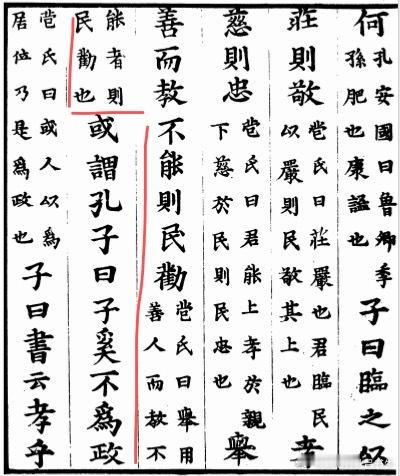 何孔安國曰魯卿季孫肥也康謚也子曰臨之以
莊則敬苞氏曰莊嚴也君臨民以嚴則民敬其上也孝
慈則忠苞氏曰君能上孝於親下慈於民則民忠也舉
善而教不能則民勸苞氏曰舉用善人而教不
能者則民勸也或謂孔子曰子奚不爲政
苞氏曰或人以爲居位乃是爲政也子曰書云孝乎